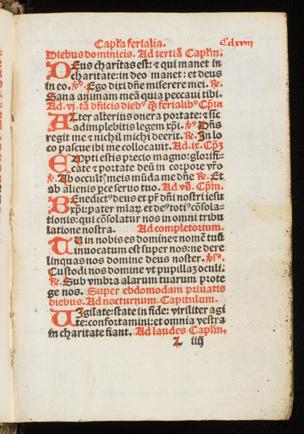 Capľa ferialia. Cclxviij
Diebus dominicis. Ad tertiā Caplm̄.
DEus charitas est: ⁊ qui manet in
charitate: in deo manet: et deus
in eo. ℣. Ego dixi dñe miserere mei. ℟.
Sana animam meā quia peccaui tibi.
Ad .vj. tā dñicis dieb⁹ ⁊ ferialib⁹ Cplm̄
ALter alterius onera portate: ⁊ sic
adimplebitis legem xp̄i. ℣. Dñs
regit me ⁊ nichil michi deerit. ℟. In lo
co pascue ibi me collocauit. Ad .ix. Cplm̄
EMpti estis precio magno: glorifi-
cate ⁊ portate deū in corpore vr̄o
℣. Ab occult̄ meis mūda me dñe ℟. Et
ab alienis parce seruo tuo. Ad vẜ. Cplm̄.
BEnedict⁹ deus et pr̄ dñi nostri iesu
xp̄i: pater miar̄ et de⁹ toti⁹ cōsola
tionis: qui cōsolatur nos in omni tribu
latione nostra. Ad completorium.
TU in nobis es domine ⁊ nomē tuū
inuocatum est super nos: ne dere
linquas nos domine deus noster. ℣.
Custodi nos domine vt pupillaʒ oculi.
℟. Sub vmbra alarum tuarum prote
ge nos. Super ebdomadam priuatis
diebus. Ad nocturnum. Capitulum.
UIgilate: state in fide: viriliter agi
te: confortamini: et omnia vestra
in charitate fiant. Ad laudes Caplm̄.
L iiij